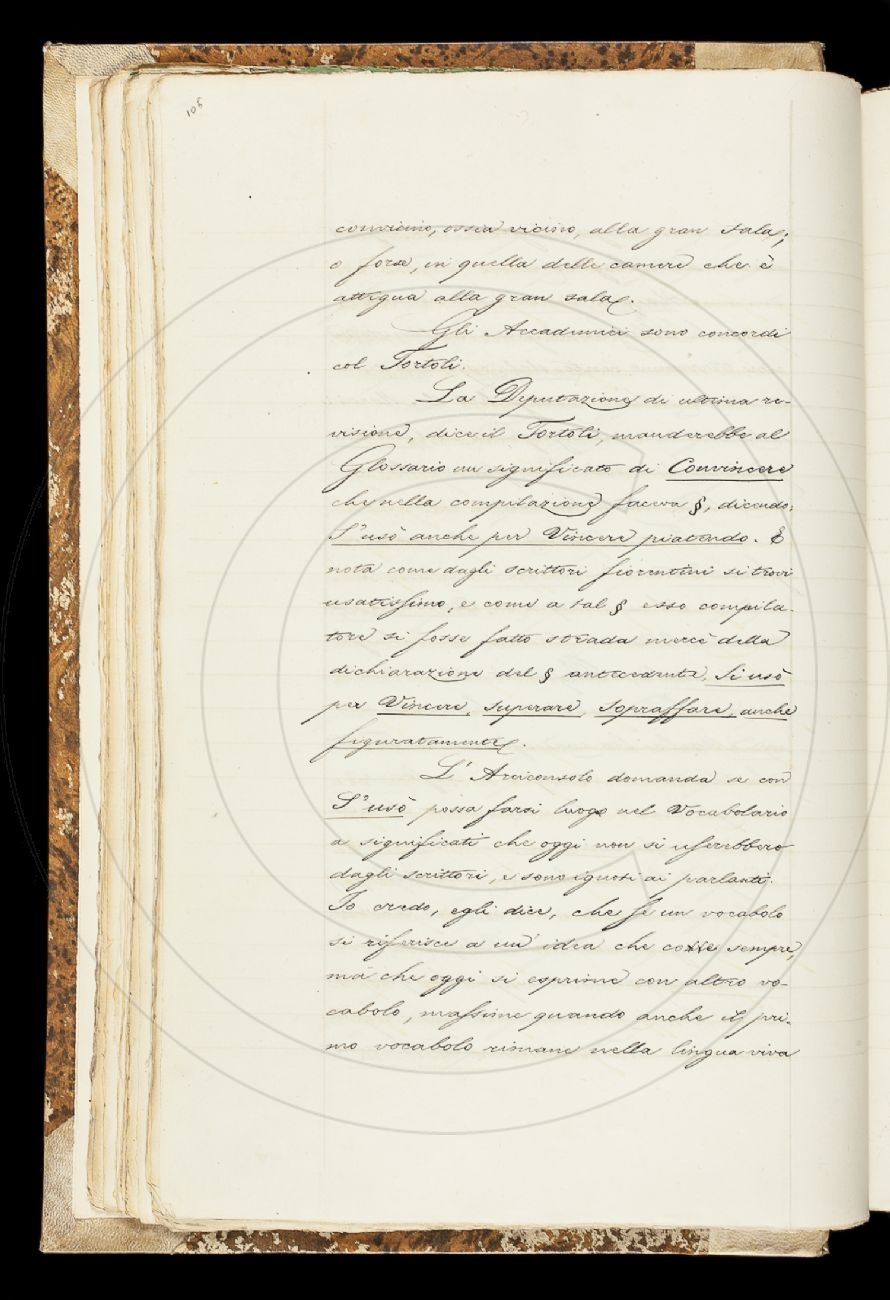 105
convicino, ossia vicino, alla gran sala;
o forse, in quella delle camere che è
attigua alla gran sala.
Gli Accademici sono concordi
col Tortoli.
La Deputazione di ultima re-
visione, dice il Tortoli, manderebbe al
Glossario un significato di Convincere
che nella compilazione faceva §, dicendo:
S'usò anche per Vincere piatendo. E
nota come dagli scrittori fiorentini si trovi
usatissimo, e come a tal § esso compila-
tore si fosse fatto strada mercè della
dichiarazione del § antecedente, Si usò
per Vincere, superare, sopraffare, anche
figuratamente.
L'Arciconsolo domanda se con
S'usò possa farsi luogo nel Vocabolario
a significati che oggi non si userebbero
dagli scrittori, e sono ignoti ai parlanti.
Io credo, egli dice, che se un vocabolo
si riferisce a un'idea che corre sempre,
ma che oggi si esprime con altro vo-
cabolo, massime quando anche il pri-
mo vocabolo rimane nella lingua viva